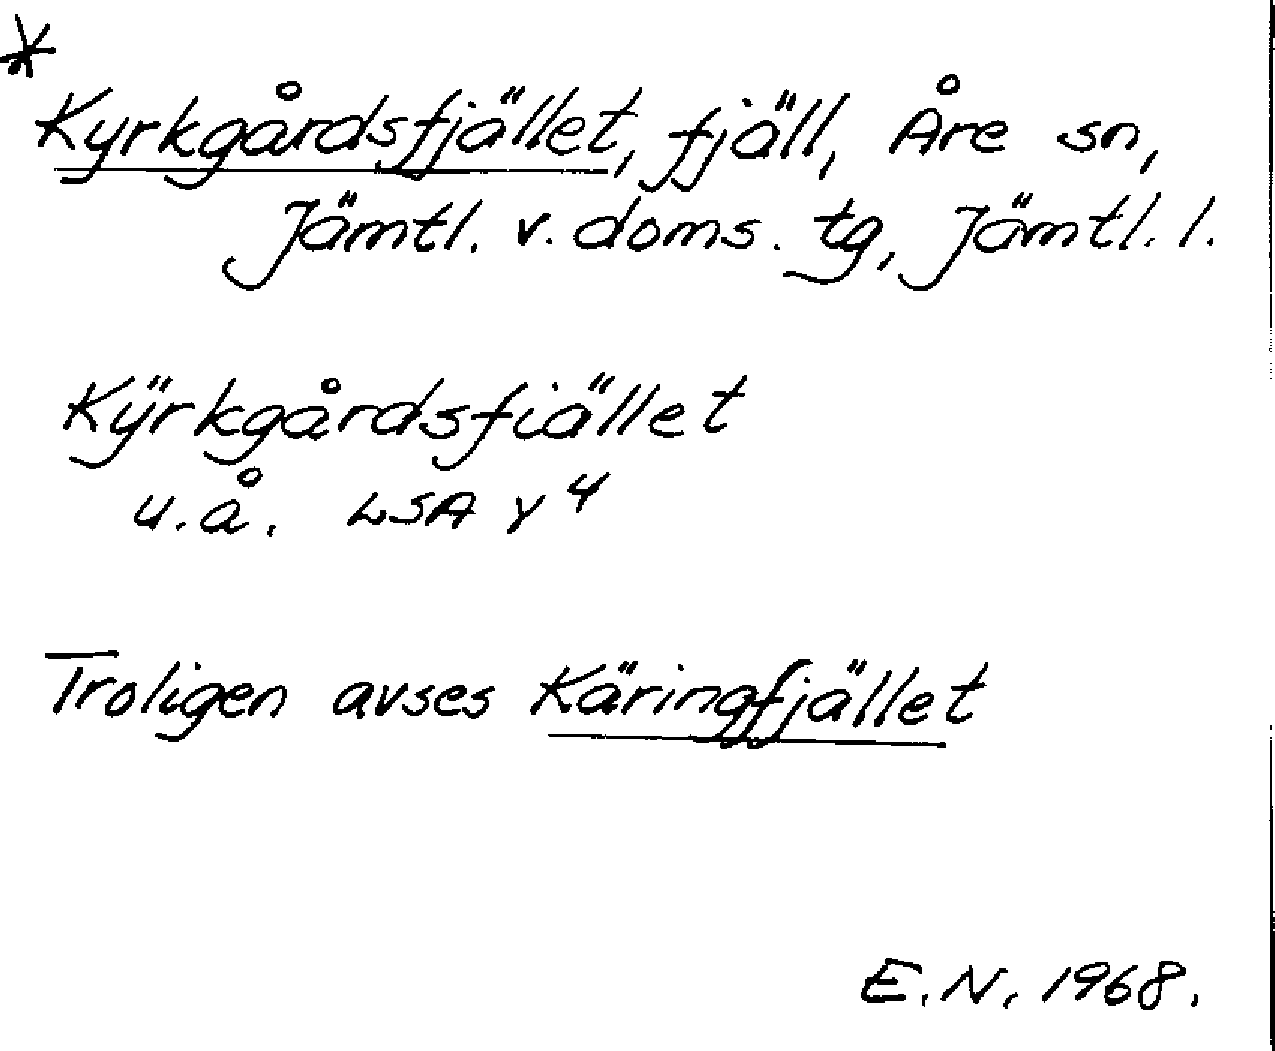 *
Kyrkgårdsfjället, fjäll, Åre sn,
Jämtl. v. doms. tg, Jämtl. l.
Kÿrkgårdsfiället
u.å. LSA Y 4
Troligen avses Käringfjället
E.N. 1968.